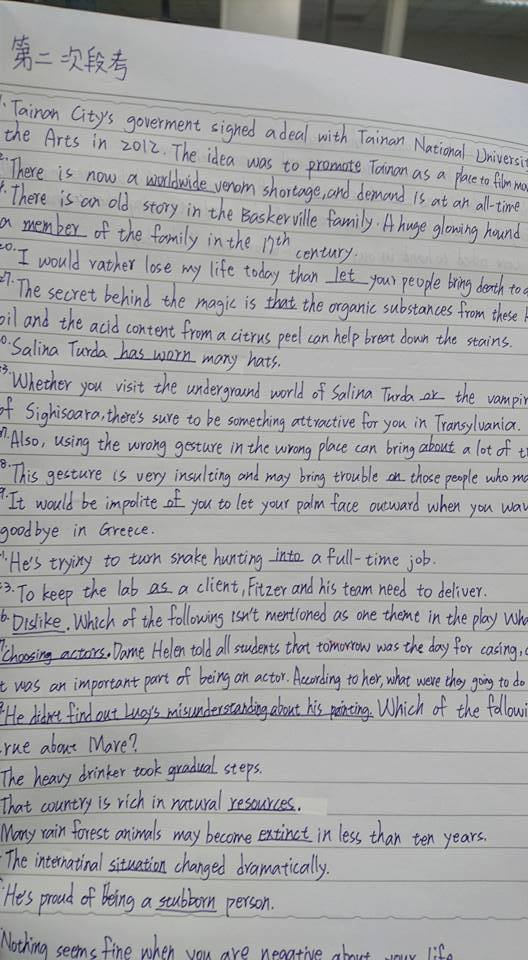 第二次段考
1. Tainan City's goverment signed a deal with Tainan National Universit
the Arts in 2012. The idea was to promote Tainan as a place to film mo
2. There is now a worldwide venom shortage, and demand is at an all-time
4. There is an old story in the Baskerville family. A huge glowing hound
a member of the family in the 17th century.
20. I would rather lose my life today than let your people bring death to
27. The secret behind the magic is that the organic substances from these
oil and the acid content from a citrus peel can help breat down the stains.
0. Salina Turda has worn many hats.
3. Whether you visit the underground world of Salina Turda or the vampir
of Sighisoara, there's sure to be something attractive for you in Transylvania.
7. Also, using the wrong gesture in the wrong place can bring about a lot of t
8. This gesture is very insulting and may bring trouble on those people who ma
9. It would be impolite of you to let your palm face outward when you wav
goodbye in Greece.
1. He's trying to turn snake hunting into a full-time job.
3. To keep the lab as a client, Fitzer and his team need to deliver.
6. Dislike. Which of the following isn't mentioned as one theme in the play Wha
7. Choosing actors. Dame Helen told all students that tomorrow was the day for casing,
t was an important part of being an actor. According to her, what were they going to do
He didn't find out Luoy's misunderstanding about his painting. Which of the followi
rue about Mave?
The heavy drinker took gradual steps.
That country is rich in natural resources.
Many rain forest animals may become extinct in less than ten years.
The internatinal situation changed dramatically.
He's proud of being a stubborn person.
Nothing seems fine when you are negative about your life